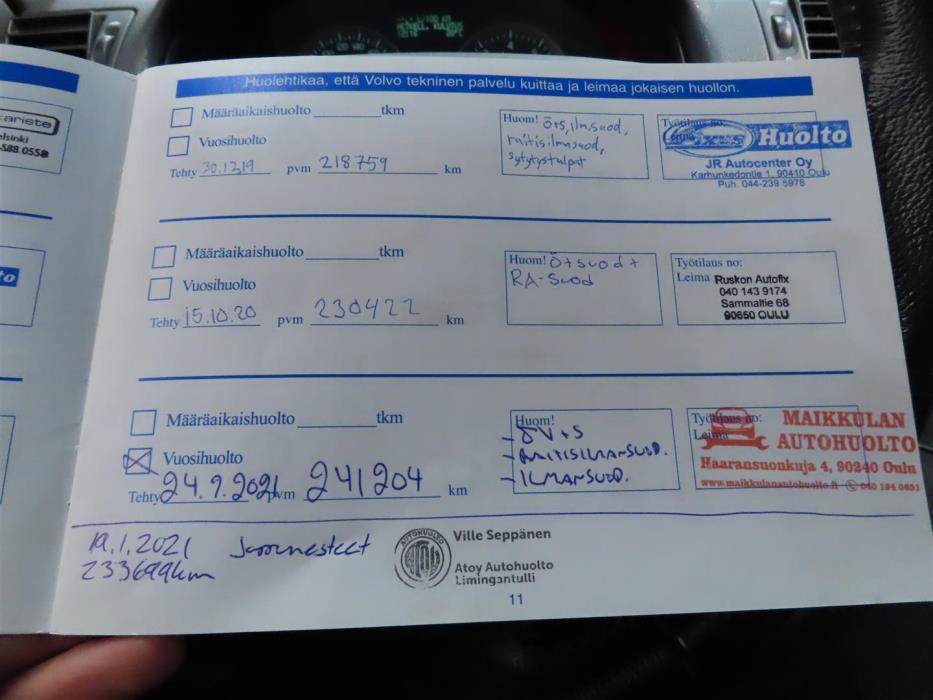 Huolehtikaa, että Volvo tekninen palvelu kuittaa ja leimaa jokaisen huollon.
ariste
elsinki
588 0558
Määräaikaishuolto ________ tkm
Vuosihuolto
Tehty 30.12.19 pvm 218759 km
Huom! Ö+S, ilm.suod,
raitisilmasuod,
sytytystulpat
Työtilaus no:
Fixus Huolto
JR Autocenter Oy
Karhunkedontie 1, 90410 Oulu
Puh. 044-239 5978
Määräaikaishuolto ________ tkm
Vuosihuolto
Tehty 15.10.20 pvm 230422 km
Huom! Ö+suod+
RA-suod
Työtilaus no:
Leima Ruskon Autofix
040 143 9174
Sammaltie 68
90650 OULU
Määräaikaishuolto ________ tkm
Vuosihuolto
Tehty 24.9.2021 pvm 241204 km
Huom!
-ÖV+S
-RAITISILMANSUOD.
-ILMANSUOD.
Työtilaus no:
Leima
MAIKKULAN
AUTOHUOLTO
Haaransuonkuja 4, 90240 Oulu
www.maikkulanautohuolto.fi 040 194 0651
19.1.2021 Jarrunesteet
233699km
AUTOHUOLTO
Ville Seppänen
Atoy Autohuolto
Limingantulli
11